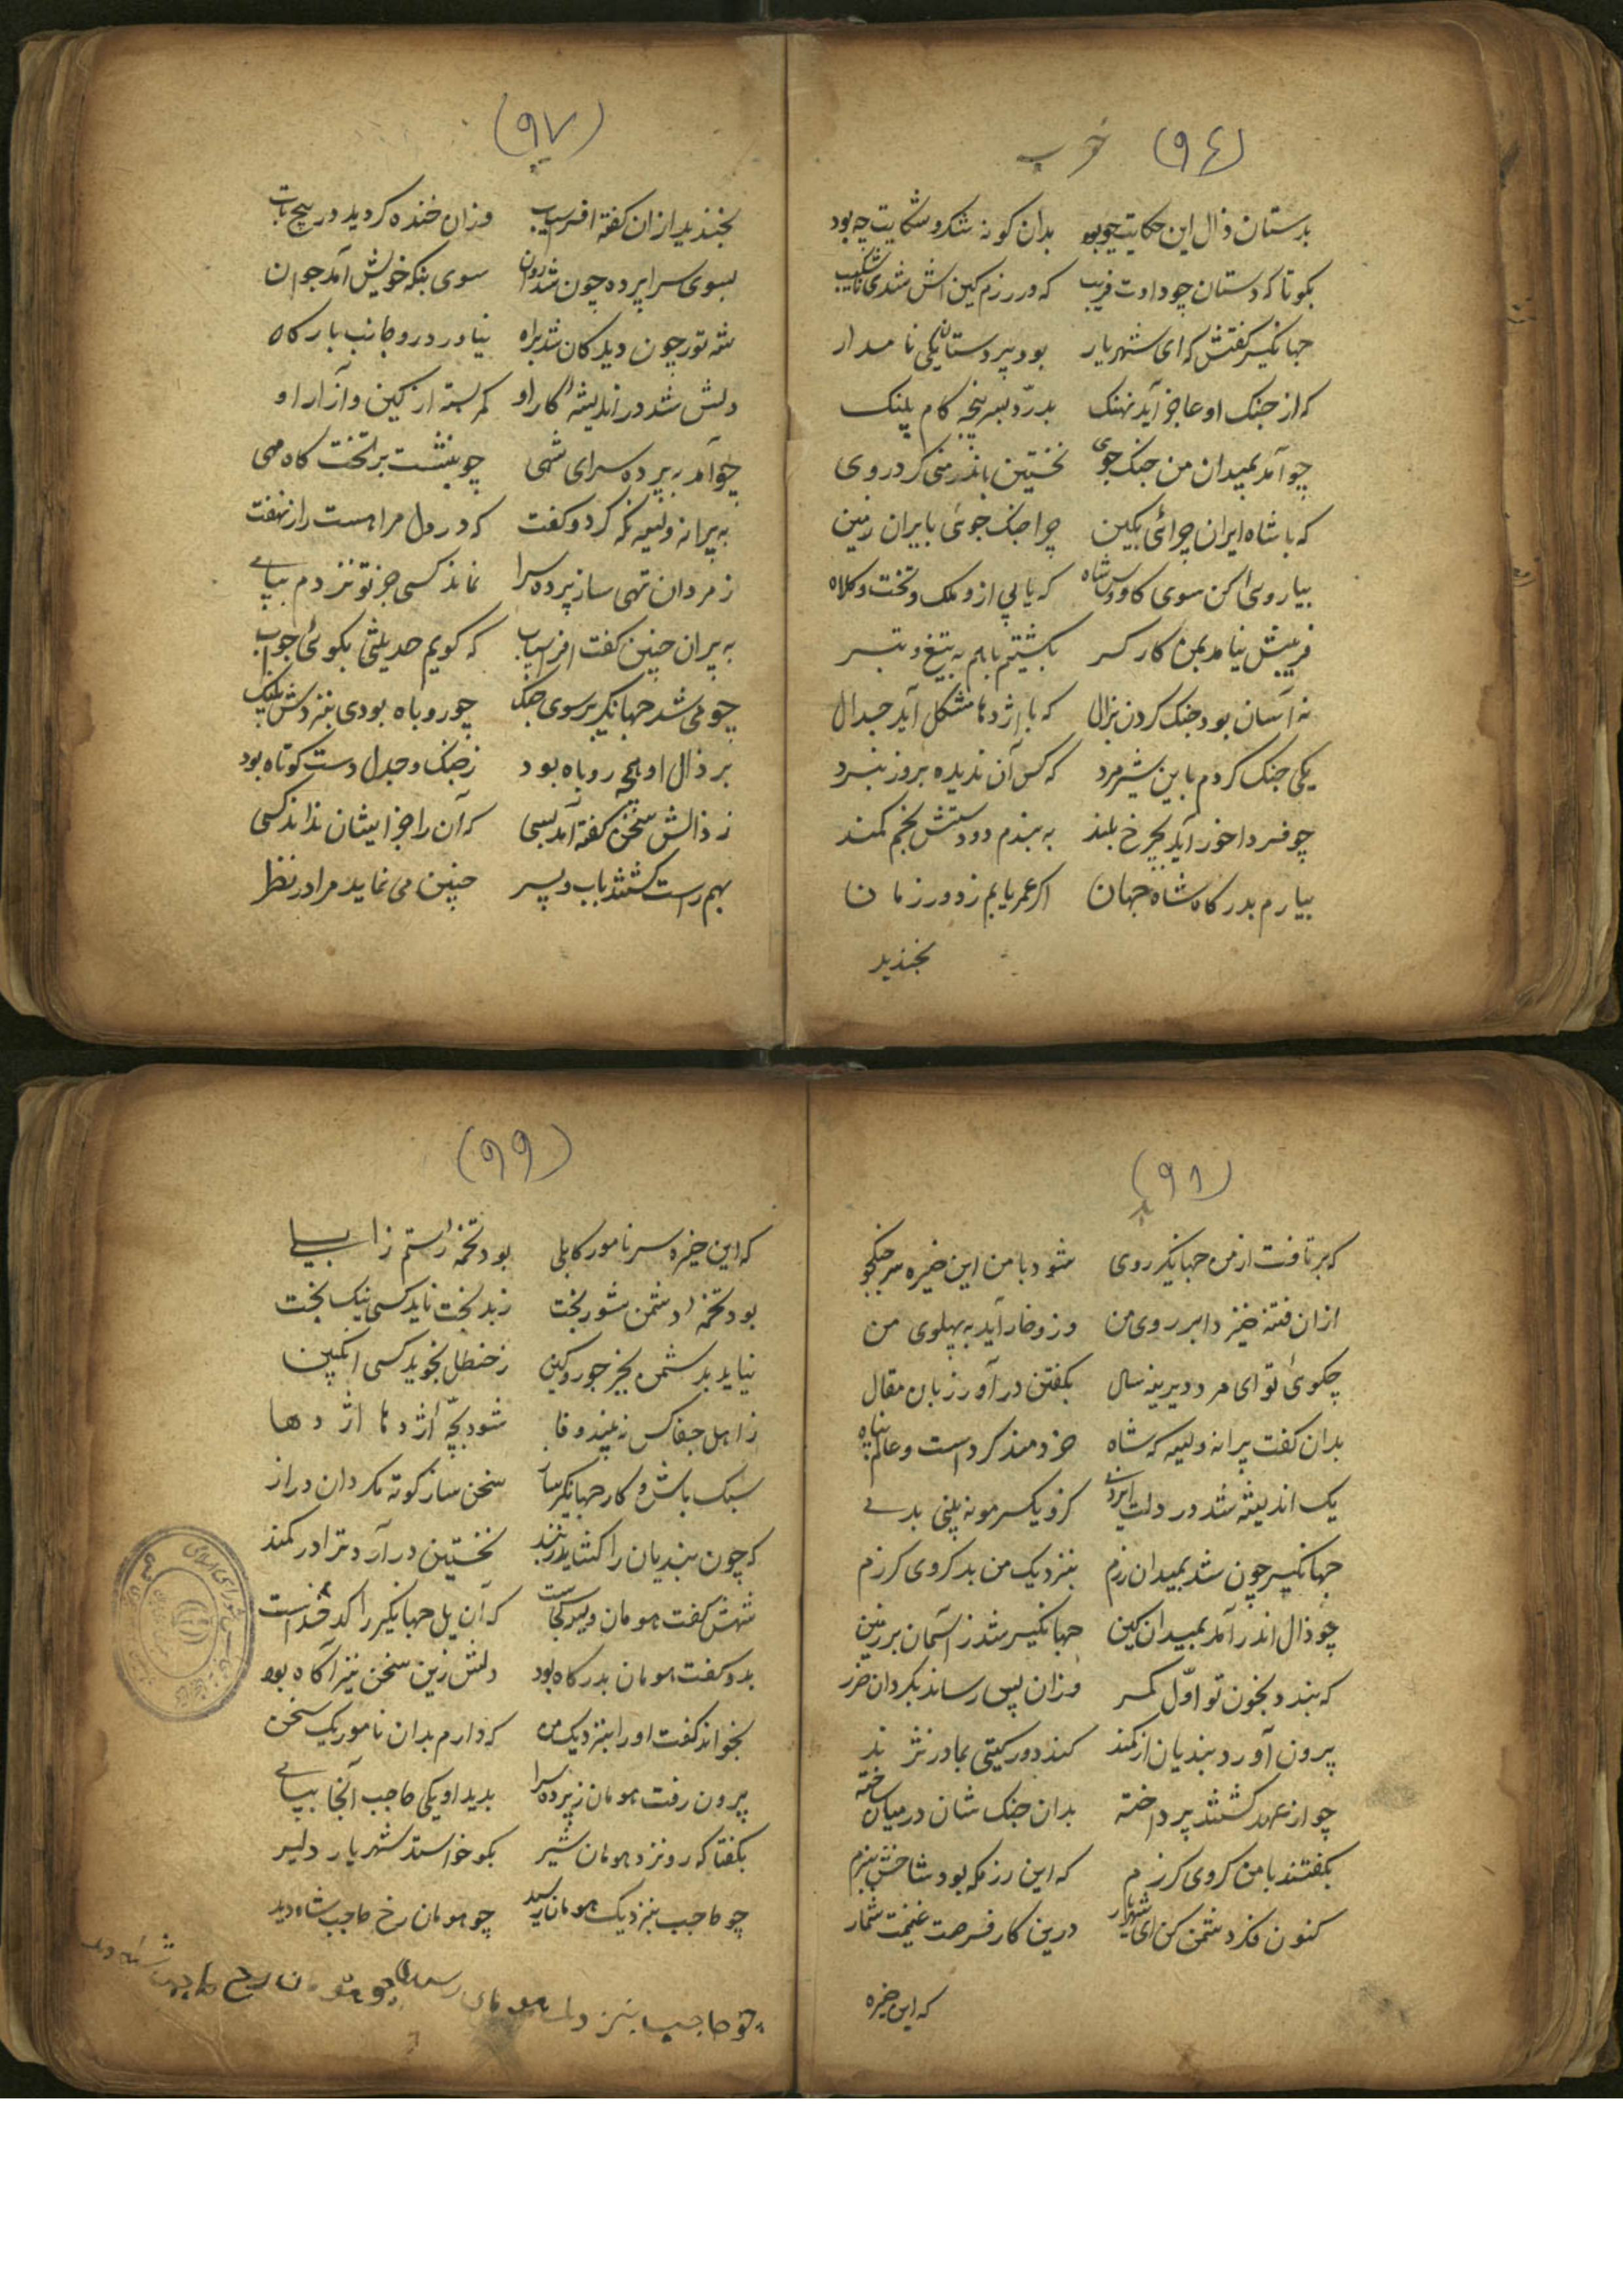 (۹۶) خوب
بدستان ذال این حکایت چه بود بدان کونه شکر و شکایت چه بود
بکو تا که دستان چو دادت فریب که در رزم کین اش شدی ناشکیب
جهانکیر کفتش که ای شهریار بود پیر دستان یکی نامدار
که از جنک او عاجز آید نهنک بدرّد بسر پنجه کام پلنک
چو آمد بمیدان من جنک جوی نخستین باندرمنی کرد روی
که با شاه ایران چرائی بکین چرا جنک جوئی بایران زمین
بیا روی اکن سوی کاوس شاه که یابی ازو ملک و تخت و کلاه
فریبش نیامد بمن کارکر بکشتیم با هم به تیغ و تبر
نه آسان بود جنک کردن بزال که با اژدها مشکل آید جدال
یکی جنک کردم باین شیر مرد که کس آن ندیده بروز نبرد
چو فردا خور آید بچرخ بلند به بندم دو دستش بخم کمند
بیارم بدرکاه شاه جهان اکر عمر یابم ز دور زمان
بخندید
(۹۷)
بخندید از ان کفته افرسیاب وزان خنده کردید در پیچ تاب
بسوی سراپرده چون شد روان سوی بنکه خویش آمد جوان
شه تور چون دید کان شد براه نیاورد رو جانب بارکاه
دلش شد در اندیشه کار او کمر بسته از کین و آزار او
چو آمد به پرده سرای شهی چو بنشست بر تخت کاه مهی
به پیرانه ویسه نکه کرد و کفت که در دل مرا هست راز نهفت
ز مردان تهی ساز پرده سرا نماند کسی جز تو نزدم بپای
به پیران چنین کفت افرسیاب که کویم حدیثی بکوئی جواب
چو می شد جهانکیر سوی جنک چو روباه بودی بنزدش پلنک
بر ذال او بچه روباه بود ز جنک و جدل دست کوتاه بود
ز ذالش سخن کفته آمد بسی که آن را جز ایشان نداند کسی
بهم راست کشتند باب و پسر چنین می نماید مرا در نظر
(۹۸)
که بر تافت از من جهانکیر روی شود با من این خیره سر جنکجو
از ان فتنه خیزد ابر روی من وزو خار آید به پهلوی من
چکوئی تو ای مرد دیرینه سال بکفتن در آور زبان مقال
بدان کفت پیرانه ویسه که شاه خردمند کرد است و عالم پناه
یک اندیشه شد در دلت ایزدی کزو یکسر مو نه بینی بدی
جهانکیر چون شد بمیدان رزم بنزدیک من بد کروی کرزم
چو ذال اندر آمد بمیدان کین جهانکیر شد ز آسمان بر زمین
که بندد بخون تو اوّل کمر وزان پس رساند بکردان ضرر
پرون آورد بندیان از کمند کند دور کیتی بما در نژند
چو از عهد کشتند پرداخته بدان جنک شان در میان ساخته
بکفتند با من کروی کرزم که این رزمکه بود شاخش بزم
کنون فکر دشمن کن ای شهریار درین کار فرصت غنیمت شمار
که این خیره
(۹۹)
که این خیره سر نامور کابلی بود تخمه رستم زابلی
بود تخمه دشمن شور بخت ز بد بخت ناید کسی نیک بخت
نیاید بد شمن بجز جور و کین ز حنظل نجوید کسی انکبین
ز اهل جفا کس نه بیند وفا شود بچّه اژدها اژدها
سبک باش و کار جهانکیر ساز سخن ساز کوته مکردان دراز
که چون بندیان را کشاید ز بند نخستین در آرد ترا در کمند
شهش کفت هومان ویسه کجاست که آن یل جهانکیر را کدخداست
بدو کفت هومان بدرکاه بود دلش زین سخن نیز آکاه بود
بخواند کفت او را بنزدیک من که دارم بدان نامور یک سخن
پرون رفت هومان ز پرده سرا بدید او یکی حاجب آنجا بپای
بکفتا که رو نزد هومان شیر بکو خواستد شهریار دلیر
چو حاجب بنزدیک هومان رسید چو هومان رخ حاجب شاه دید
چو حاجب بنزدیک هومان رسید چو هومان رخ حاجب شاه دید